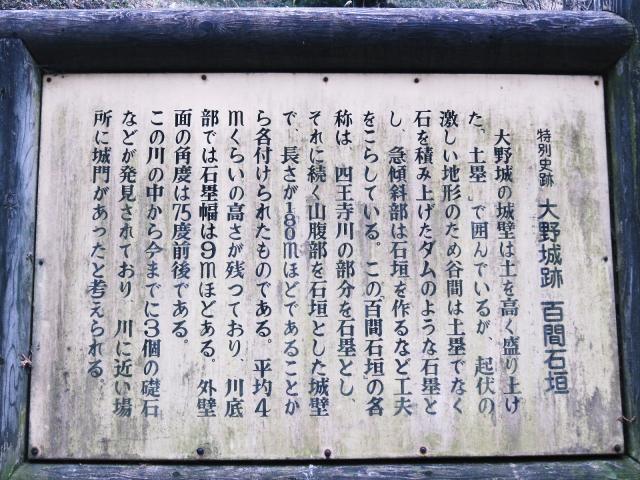 特別史跡 大野城跡 百間石垣
大野城の城壁は土を高く盛り上げ
た、土塁」で囲んでいるが、起伏の
激しい地形のため谷間は土塁でなく
石を積み上げたダムのような石塁と
し、急傾斜部は石垣を作るなど工夫
をこらしている。この百間石垣の名
称は、四王寺川の部分を石塁とし、
それに続く山腹部を石垣とした城壁
で、長さが180mほどであることか
ら名付けられたものである。平均4
mくらいの高さが残っており、川底
部では石塁幅は9mほどある。外壁
面の角度は75度前後である。
この川の中から今までに3個の礎石
などが発見されており、川に近い場
所に城門があったと考えられる。